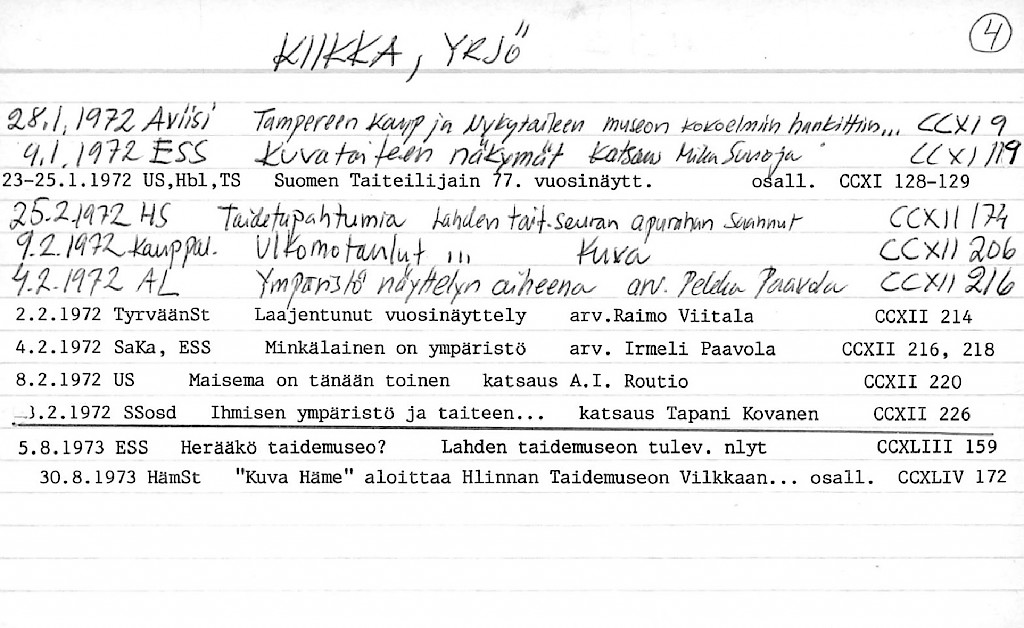 4
KIIKKA, YRJÖ
28.1.1972 Aviisi Tampereen Kaup ja Nykytaiteen museon kokoelmiin hankittiin... CCXI 9
9.1.1972 ESS Kuvataiteen näkymät Katsaus Mika Suvioja CCXI 119
23-25.1.1972 US,Hbl,TS Suomen Taiteilijain 77. vuosinäytt. osall. CCXI 128-129
25.2.1972 HS Taidetapahtumia Lahden tait.seuran apurahan saannut CCXII 174
9.2.1972 Kauppal. Ulkomotaulut ... Kuva CCXII 206
4.2.1972 AL Ympäristö näyttelyn aiheena arv. Pekka Paavola CCXII 216
2.2.1972 TyrväänSt Laajentunut vuosinäyttely arv.Raimo Viitala CCXII 214
4.2.1972 SaKa, ESS Minkälainen on ympäristö arv. Irmeli Paavola CCXII 216, 218
8.2.1972 US Maisema on tänään toinen katsaus A.I. Routio CCXII 220
3.2.1972 SSosd Ihmisen ympäristö ja taiteen... katsaus Tapani Kovanen CCXII 226
5.8.1973 ESS Herääkö taidemuseo? Lahden taidemuseon tulev. nlyt CCXLIII 159
30.8.1973 HämSt "Kuva Häme" aloittaa Hlinnan Taidemuseon Vilkkaan... osall. CCXLIV 172